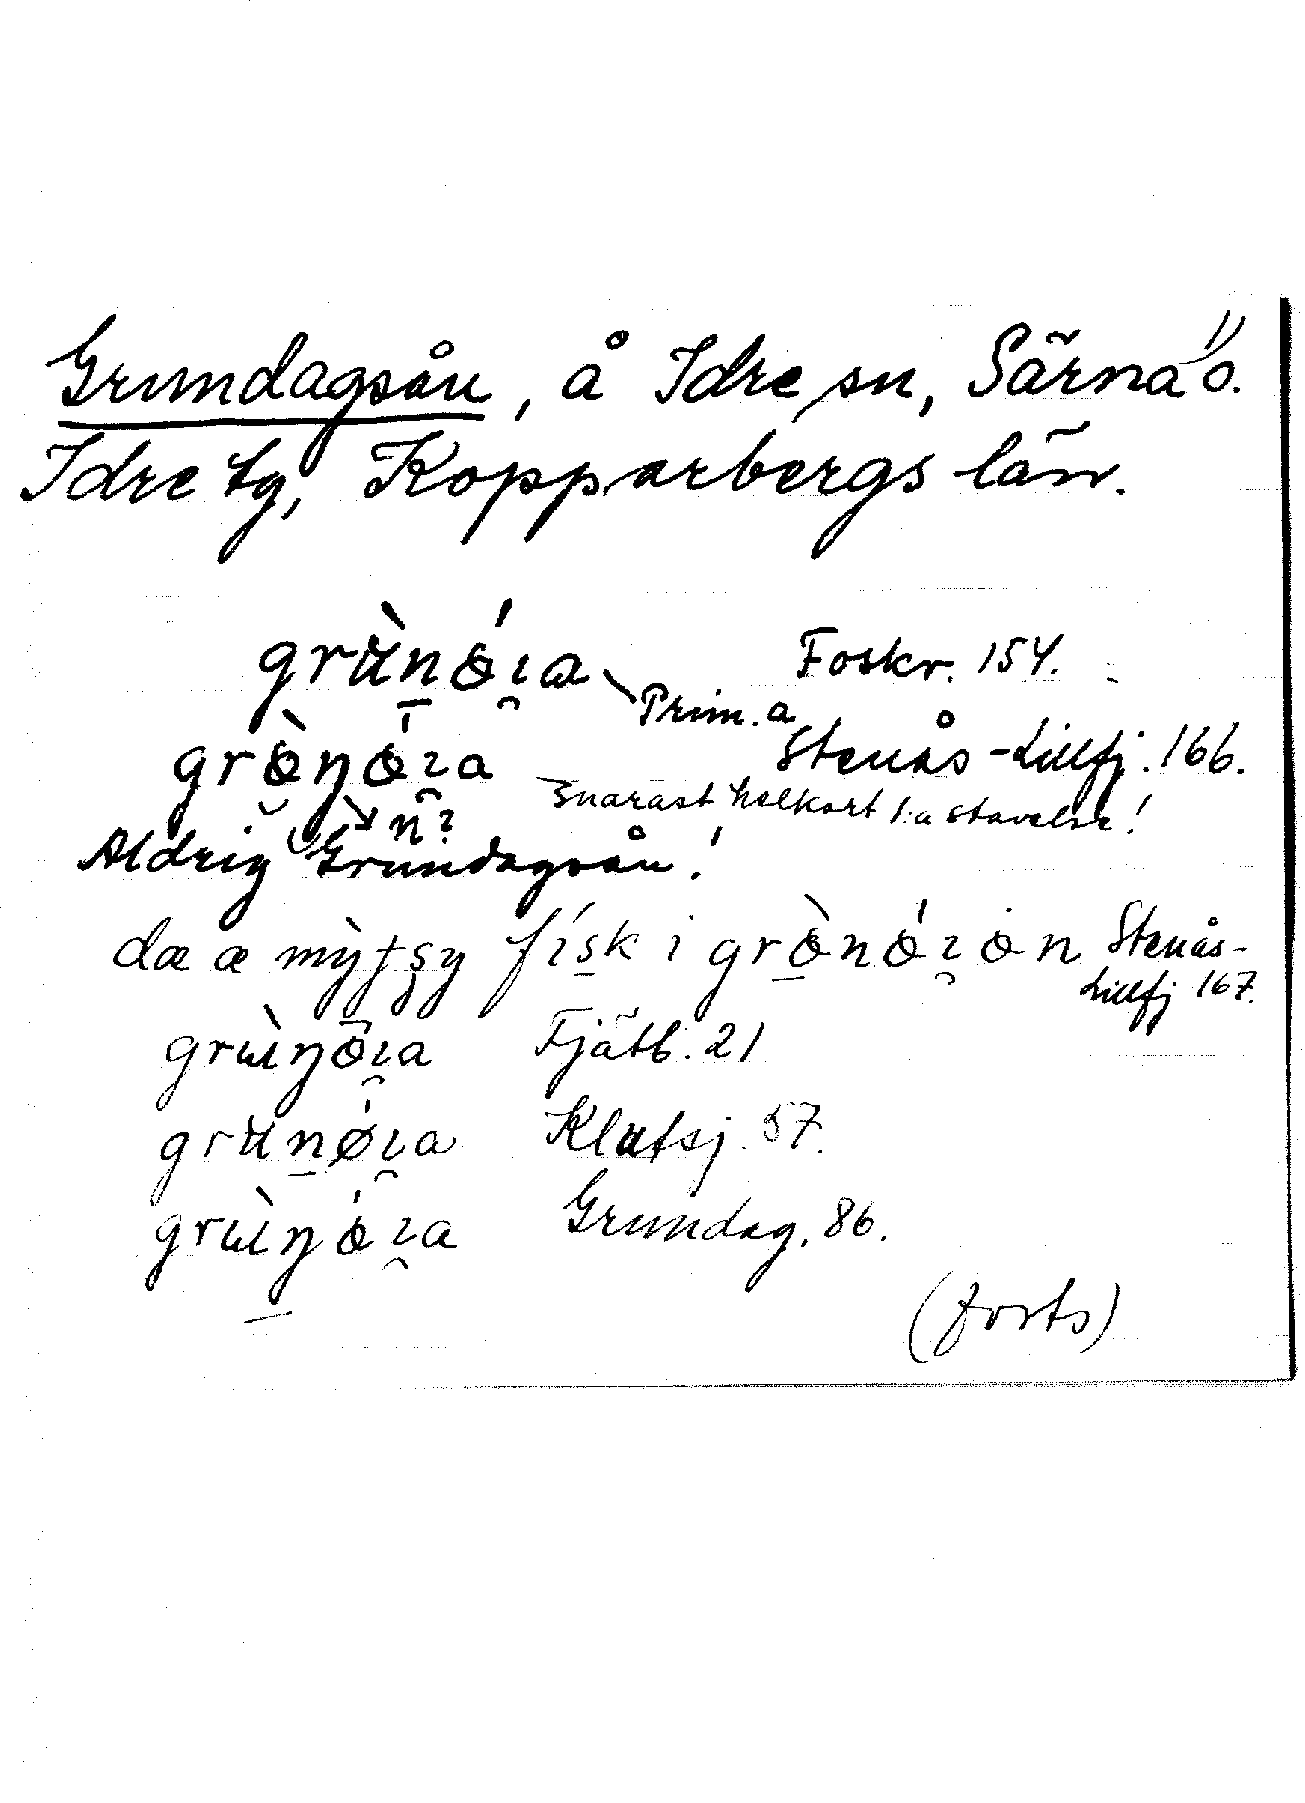 Grundagsån, å Idre sn, Särna o.
Idre tg, Kopparbergs län.
grùnǿıa Foskr. 154.
Prim. a
grònǿıa Stenås-Lillfj. 166.
snarast helkort 1:a stavelse!
n?
Aldrig Grundagsån!
dæ æ mỳtsy físk i grònǿıon Stenås-
Lillfj 167.
grùŋǿıa Fjätb. 21
grunǿıa Klutsj. 57.
grùŋǿıa Grundag. 86.
(forts)